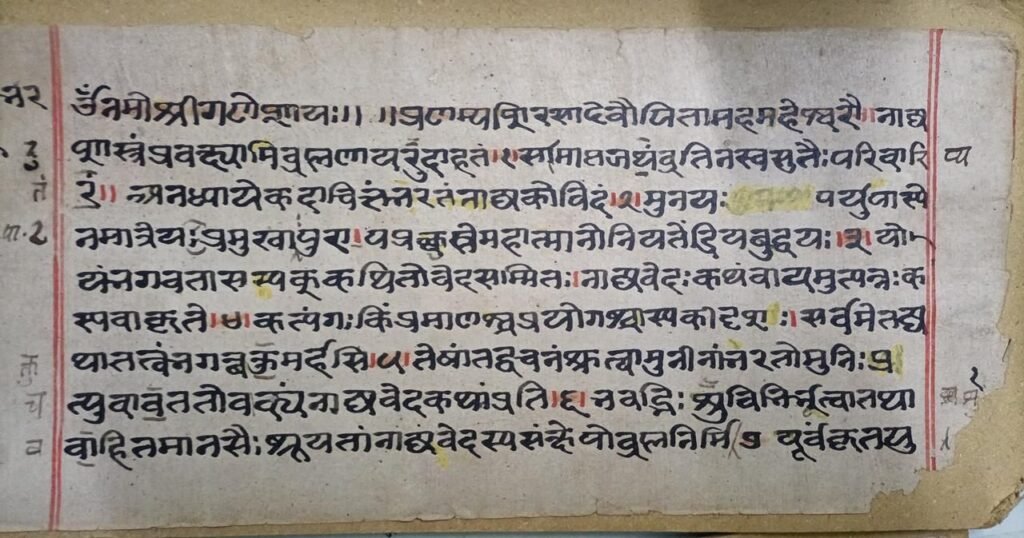 ॐनमोश्रीगणेशायः॥ ॥प्रणम्यशिरसादेवौपितामहमहेश्वरौ॥नाट्य
शास्त्रंप्रवक्ष्यामिब्रुह्मणायदुदाहृतं१समाप्तजप्यंव्रतिनंस्वसुतैःपरिवारि
तं॥अनध्यायेकदाचित्तुंभरतंनाट्यकोविदं२मुनयः पर्युपास्ये
नमात्रेयःप्रमुखापुरा।पप्रच्छुस्तेमहात्मानोनियतेंद्रियबुद्धयः।३।यो
यंभगवतासम्यक्कथितोवेदसम्मितः।नाट्यवेदःकथंवायमुत्पन्नःक
स्यवाकृते।४।कत्यंगःकिंप्रमाणश्चप्रयोगश्चास्यकीदृशः।सर्वमेतद्य
थातत्त्वंभगवन्वक्तुमर्हसि।५।तेषांतद्वचनंश्रुत्वामुनीनांभरतोमुनिः।प्र
त्युवाचततोवाक्यंनाट्यवेदकथांप्रति।६।भवद्भिःशुचिभिर्भूत्वातथा
वाहितमानसैःश्रूयतांनाट्यवेदस्यसंभवोब्रुह्मनिर्मि पूर्वंकृतयु